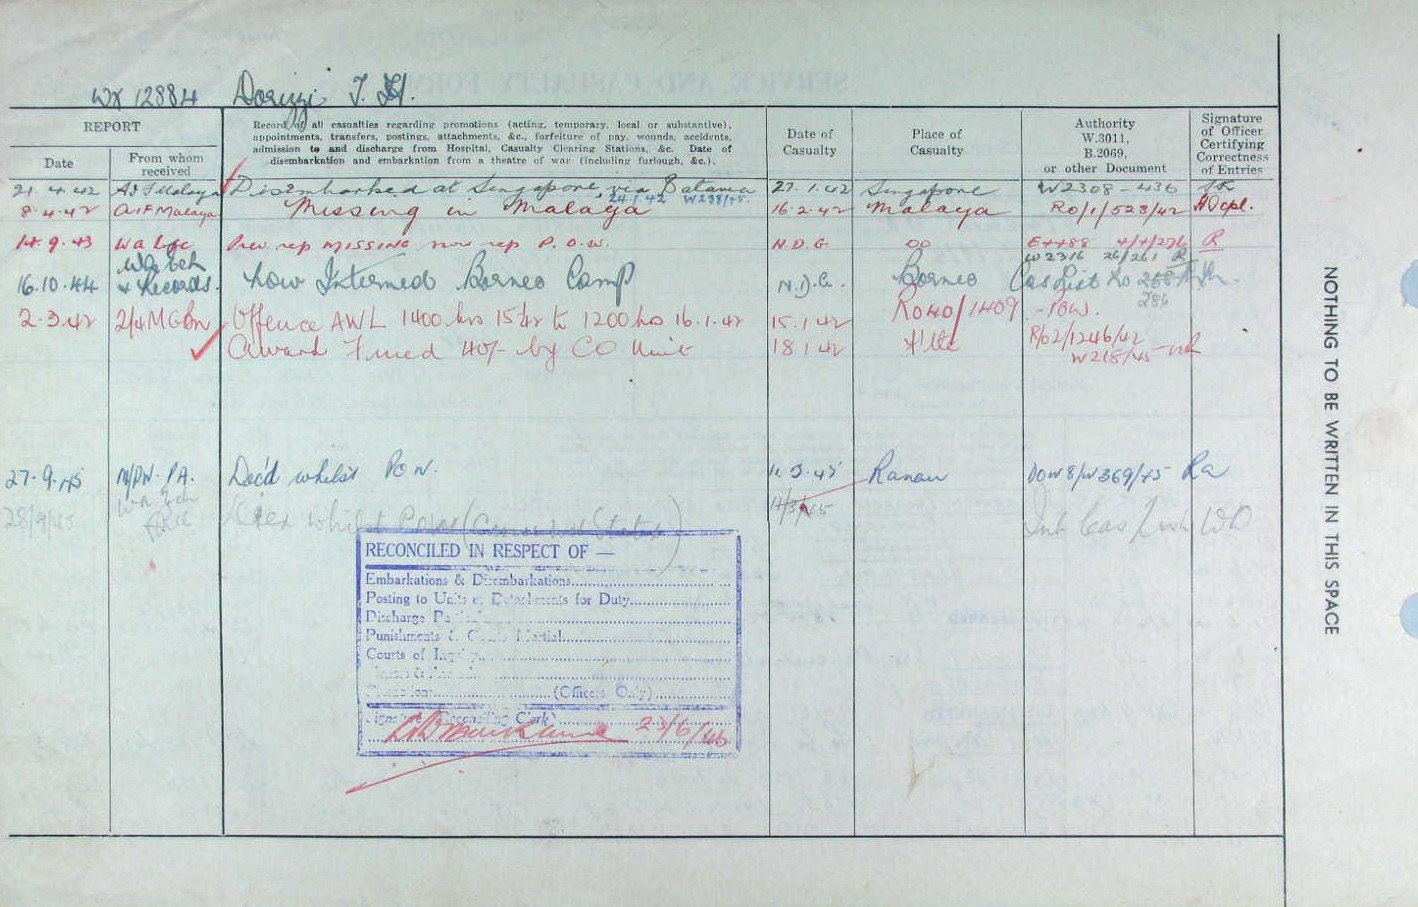 WX 12884 Dorizzi T. H.
REPORT
Date
From whom received
Record of all casualties regarding promotions (acting, temporary, local or substantive),
appointments, transfers, postings, attachments, &c., forfeiture of pay, wounds, accidents,
admission to and discharge from Hospital, Casualty Clearing Stations, &c. Date of
disembarkation and embarkation from a theatre of war (including furlough, &c.).
Date of Casualty
Place of Casualty
Authority W.3011, B.2069, or other Document
Signature of Officer Certifying Correctness of Entries
21.4.42 AIF Malaya Disembarked at Singapore via Batavia 27.1.42 Singapore W2308-436
24.1.42 W238/45.
8.4.42 AIF Malaya Missing in Malaya 16.2.42 Malaya RO/1/523/42
14.9.43 Wa Prev rep MISSING now rep P.O.W. N.D.G. do E4488
W2316 26/261
16.10.44 Wa Ech & Records. Now Interned Borneo Camp N.D.G. Borneo Cas List No
284
2.3.42 2/4 MG Bn Offence AWL 1400 hrs 15/1/42 to 1200 hrs 16.1.42 15.1.42 RO40/1409 -POW.
Award Fined 40/- by CO Unit 18.1.42 R/62/1246/42
W218/45
27.9.45 Dec'd whilst POW. Ranau DOW8/W369/45
28/9/45 Wa Ech Died whilst POW
NOTHING TO BE WRITTEN IN THIS SPACE
RECONCILED IN RESPECT OF —
Embarkations & Disembarkations
Posting to Units or Detachments for Duty
Discharge
Punishments & Courts Martial
Courts of Inquiry
(Officers Only)
Signature (Reconciling Clerk)
23/6/46